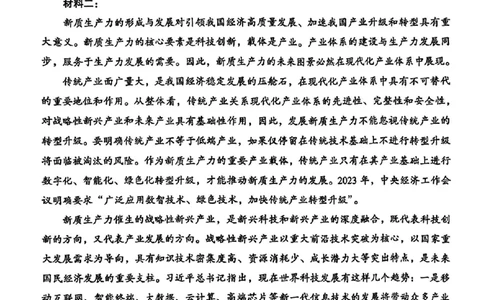 材料二：
新质生产力的形成与发展对引领我国经济高质量发展、加速我国产业升级和转型具有重
大意义。新质生产力的核心要素是科技创新，载体是产业。产业体系的建设与生产力发展同
步，服务于生产力发展的需要。因此，新质生产力的未来图景必然在现代化产业体系中展现。
传统产业面广量大，是我国经济稳定发展的压舱石，在现代化产业体系中具有不可替代
的重要地位和作用。从整体看，传统产业关系现代化产业体系的先进性、完整性和安全性，
对战略性新兴产业和未来产业具有基础性作用，因此，发展新质生产力不能忽视传统产业的
转型升级。要明确传统产业不等于低端产业，如果仅停留在传统技术基础上不进行转型升级
将面临被淘汰的风险。作为新质生产力的重要产业载体，传统产业只有在其产业基础上进行
数字化、智能化、绿色化转型升级，才能推动新质生产力的发展。2023 年，中央经济工作会
议明确要求“广泛应用数智技术、绿色技术，加快传统产业转型升级”。
新质生产力催生的战略性新兴产业，是新兴科技和新兴产业的深度融合，既代表科技创
新的方向，又代表产业发展的方向。战略性新兴产业以重大前沿技术突破为核心，以国家重
大发展需求为导向，具有知识技术密集度高、资源消耗少、成长潜力大等突出特点，是未来
国民经济发展的重要支柱。习近平总书记指出，现在世界科技发展有这样几个趋势：一是移
动互联网、智能终端、大数据、云计算、高端芯片等新一代信息技术的发展将带动众多产业